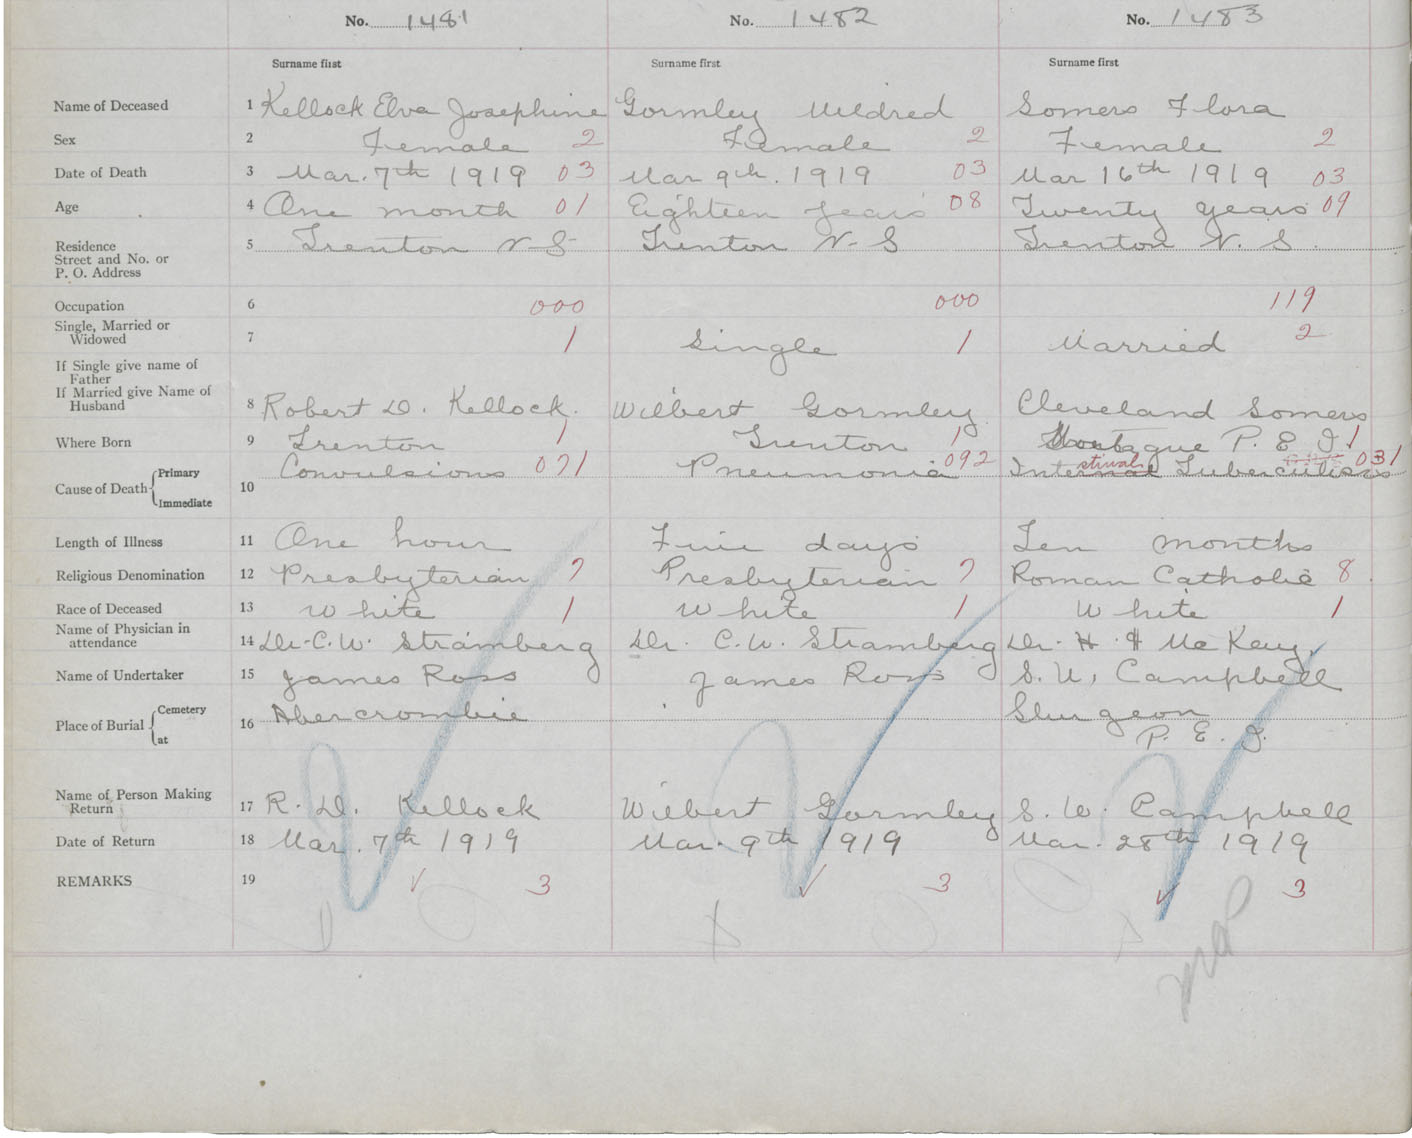 No. 1481 No. 1482 No. 1483
Surname first Surname first Surname first
Name of Deceased 1 Kellock Elva Josephine Gormley Mildred Somers Flora
Sex 2 Female 2 Female 2 Female 2
Date of Death 3 Mar. 7th 1919 03 Mar 9th. 1919 03 Mar 16th 1919 03
Age 4 One month 01 Eighteen years 08 Twenty years 09
Residence 5 Trenton N S Trenton N. S Trenton N. S.
Street and No. or
P. O. Address
Occupation 6 000 000 119
Single, Married or
Widowed 7 1 Single 1 Married 2
If Single give name of
Father
If Married give Name of
Husband 8 Robert D. Kellock. Wilbert Gormley Cleveland Somers
Where Born 9 Trenton 1 Trenton 1 Montague P. E. I. 1
Cause of Death Primary Convulsions 071 Pneumonia 092 Internal stinal Tuberculosis 031
10
Immediate
Length of Illness 11 One hour Five days Ten months
Religious Denomination 12 Presbyterian 7 Presbyterian 7 Roman Catholic 8
Race of Deceased 13 White 1 White 1 White 1
Name of Physician in
attendance 14 Dr. C. W. Stramberg Dr. C. W. Stramberg Dr. H. H McKay
Name of Undertaker 15 James Ross James Ross S. W. Campbell
Place of Burial Cemetery 16 Abercrombie Sturgeon
at P. E. I.
Name of Person Making
Return 17 R. D. Kellock Wilbert Gormley S. W. Campbell
Date of Return 18 Mar. 7th 1919 Mar. 9th 1919 Mar. 28th 1919
REMARKS 19 ✓ 3 ✓ 3 ✓ 3